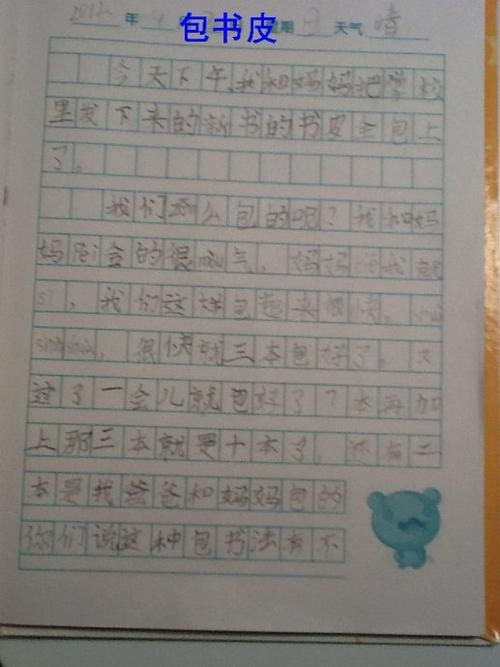 包书皮
2012年 星期日 天气 晴
今天下午,我和妈妈把学校
里发下来的新书的书皮全包上
了。
我们怎么包的呢?我和妈
妈配合的很 气,妈妈说我
si,我们这样包起来很快,
很快就三本包好了。又
过了一会儿就包好了7本再加
上那三本就是十本了,还有二
本是我爸爸和妈妈包的
你们说这种包书法有不